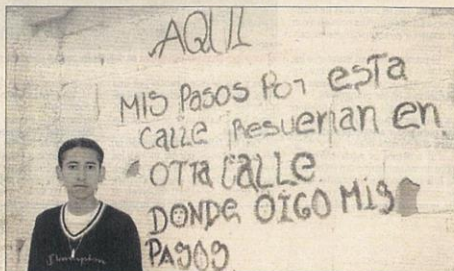 AQUI
MIS PASOS POR ESTA
CALLE RESUENAN EN
OTRA CALLE
DONDE OIGO MIS
PASOS
Champion